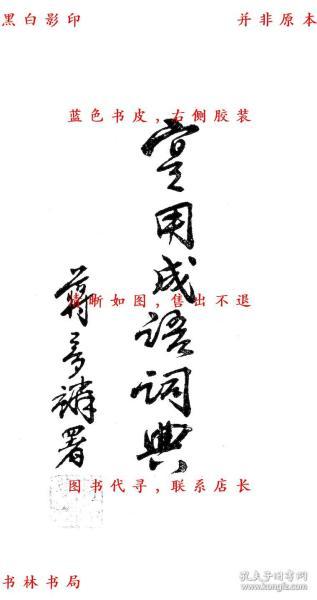 黑白影印
并非原本
蓝色书皮，右侧胶装
實用成語詞典
清晰如图，售出不退
蔣夢麟署
图书代寻，联系店长
书林书局
孔夫子旧书网